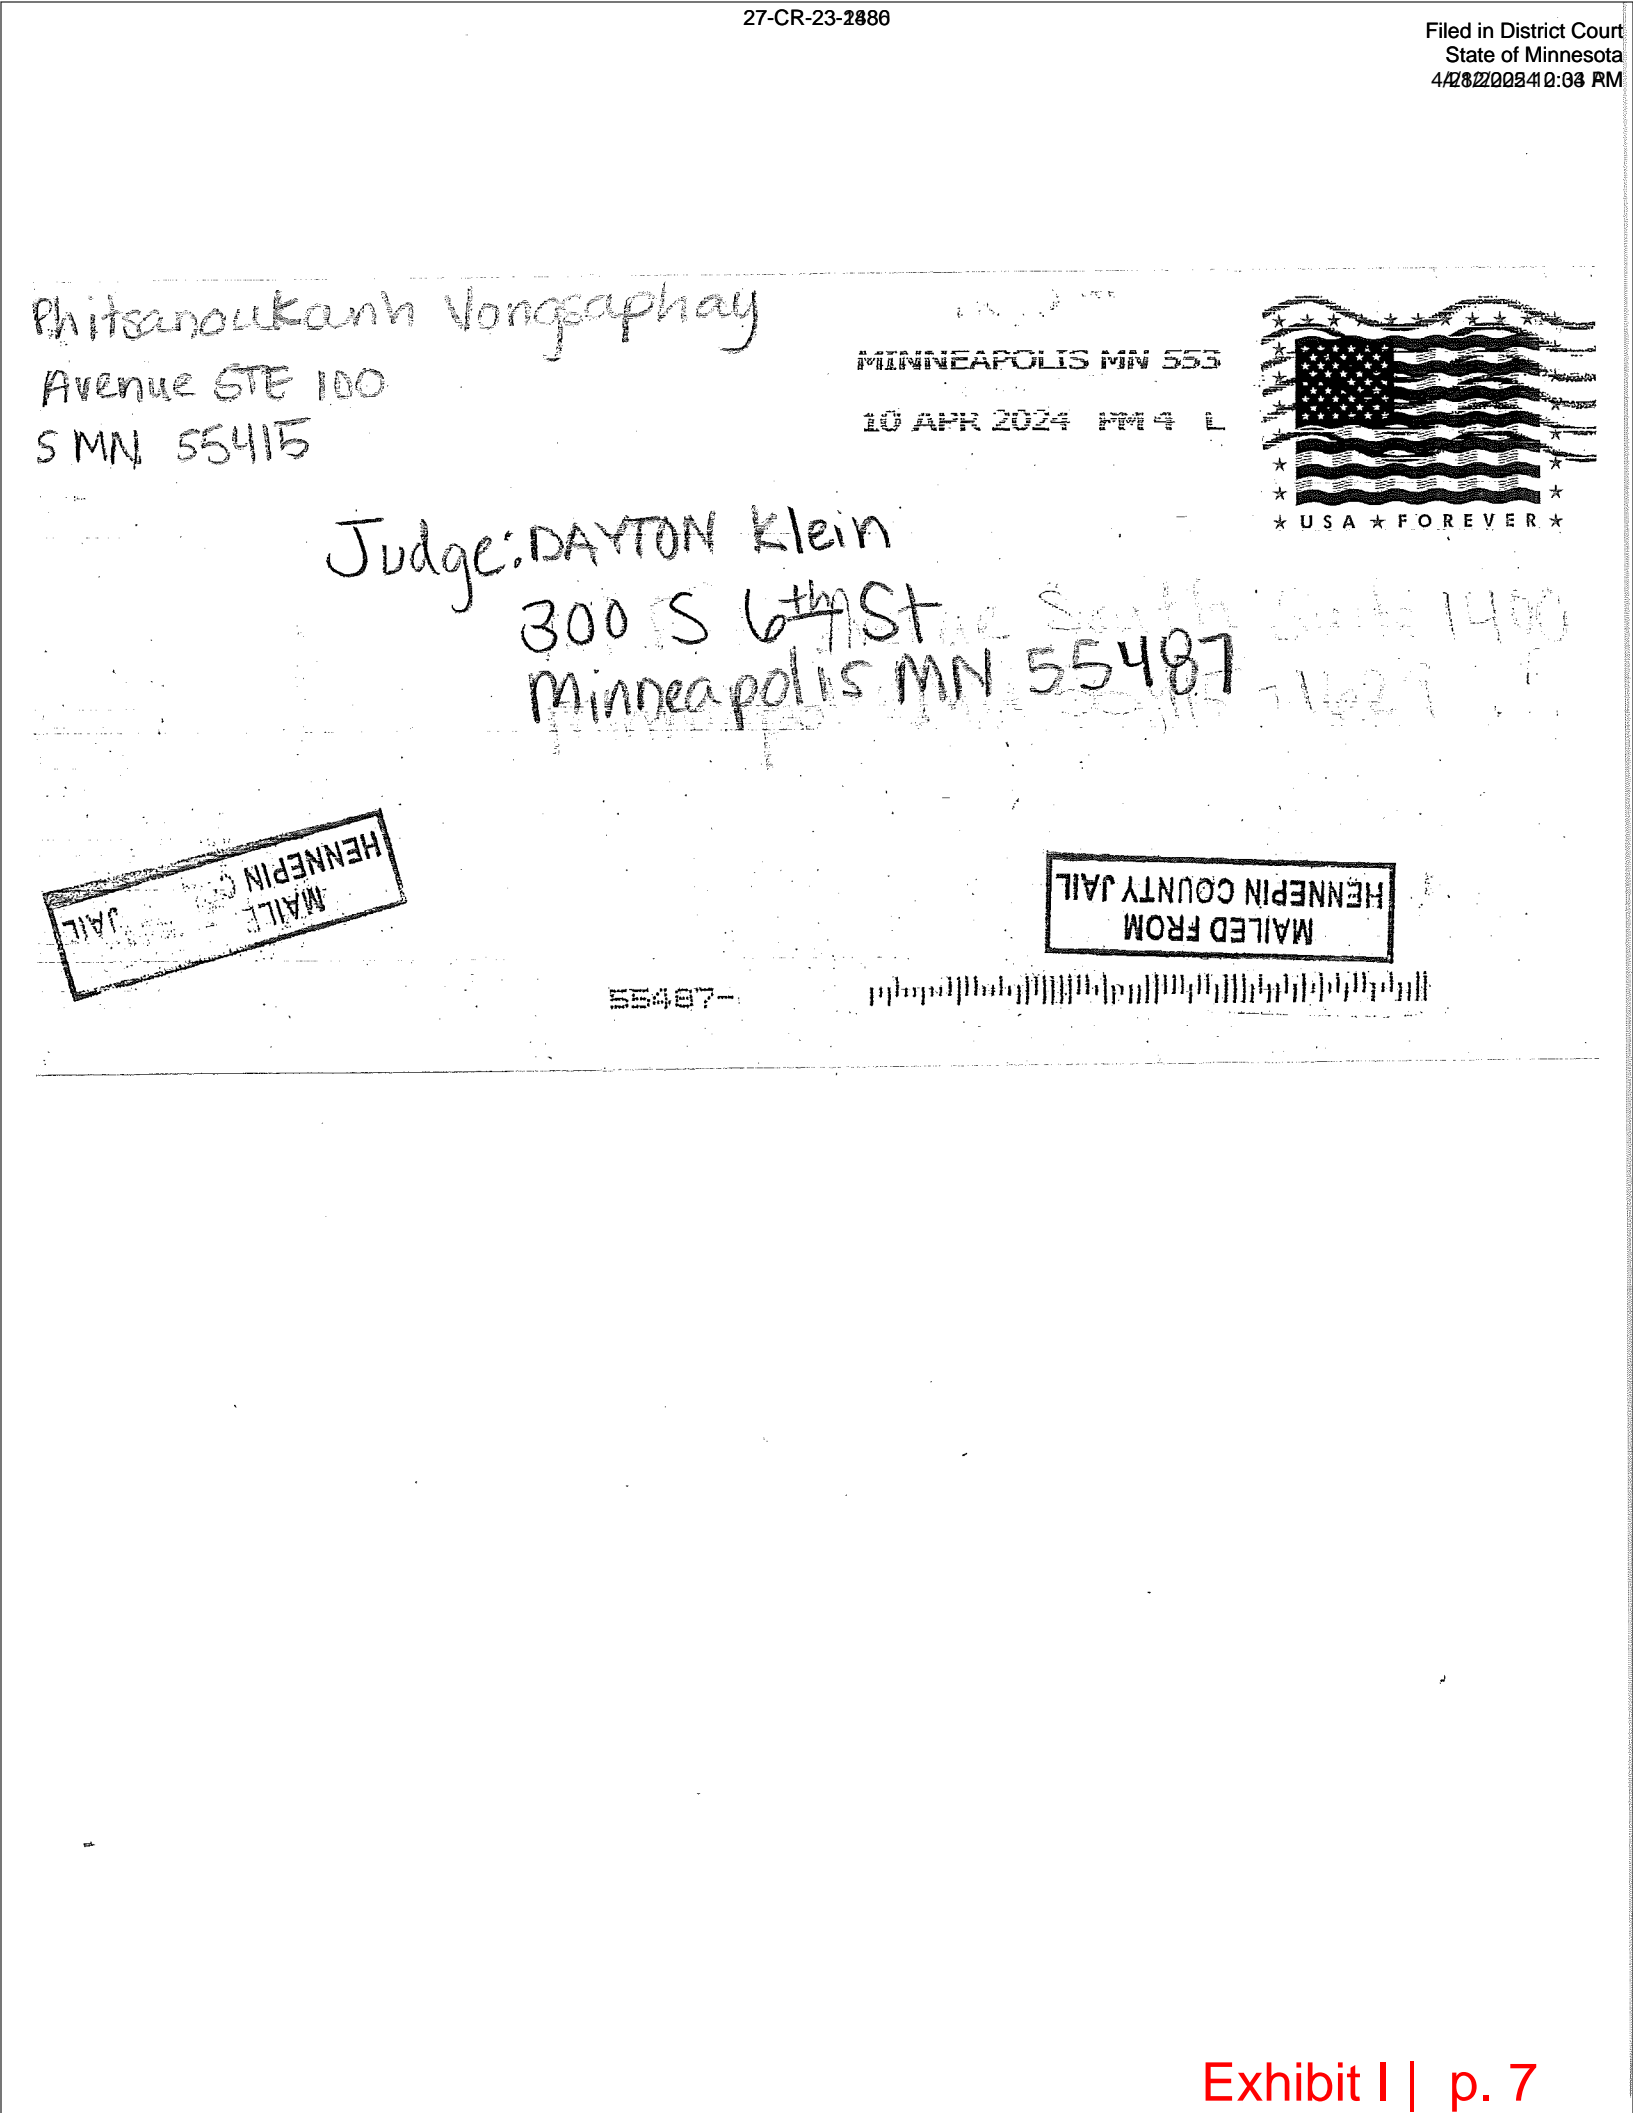 27-CR-23-
Filed in District Court
State of Minnesota
Phitsanoukanh Vongsaphay
Avenue STE 100
S MN 55415
MINNEAPOLIS MN 553
10 APR 2024 PM 4 L
USA FOREVER
Judge: DAYTON Klein
300 S 6th St
Minneapolis MN 55487
South Suite 1400
HENNEPIN
JAIL
MAILED FROM
HENNEPIN COUNTY JAIL
55487-
Exhibit I | p. 7